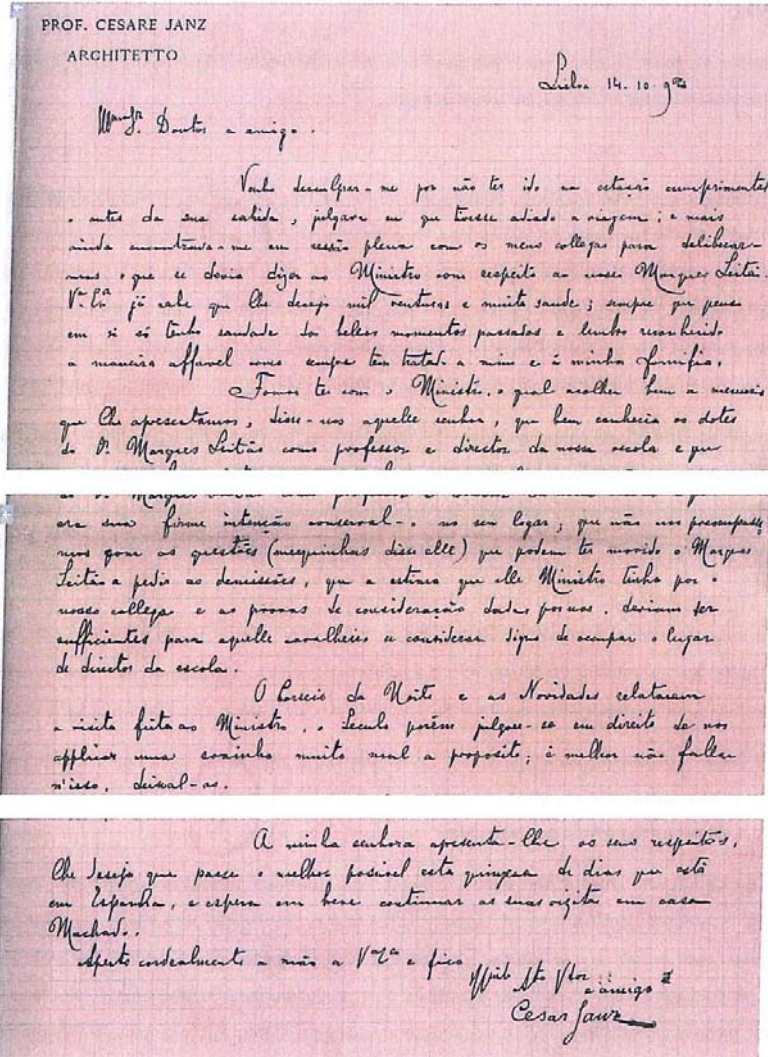 PROF. CESARE JANZ
ARCHITETTO
Lisboa 14. 10. 
Doutor e amigo.
Venho desculpar-me por não ter ido na estação cumprimental
o antes da sua sahida, julgava eu que tivesse adiado a viagem; e mais
ainda encontrava-me em sessão plena com os meus collegas para deliberar-
mos o que se devia dizer ao Ministro com respeito ao nosso Marques Leitão.
V.ª Ex.ª já sabe que lhe desejo mil venturas e muita saude; sempre que penso
em si só tenho saudade dos bellos momentos passados e lembro reconhecido
a maneira affavel como sempre tem tratado a mim e á minha familia.
Fomos ter com o Ministro, o qual acolheu bem a
que lhe apresentamos, disse-nos aquelle senhor, que bem conhecia os dotes
do Dr. Marques Leitão como professor e director da nossa escola e que
era sua firme intenção conserval-o no seu logar; que não nos
com as questões (mesquinhas disse elle) que podem ter movido o Marques
Leitão a pedir as demissões, que a estima que elle Ministro tinha por o
nosso collega e as provas de consideração dadas por nos, deviam ser
sufficientes para aquelle cavalheiro se considerar digno de occupar o logar
de director da escola.
O Correio da Noite e as Novidades relataram
a visita feita ao Ministro, o Seculo porém julgou-se em direito de nos
applicar uma muito mal a proposito; é melhor não fallar
n'isso, deixal-os.
A minha senhora apresenta-lhe os seus respeitos,
lhe deseja que passe o melhor possivel esta quinzena de dias que está
em Espanha, e espera em breve continuar as suas visitas em casa
Machado.
Aperto cordealmente a mão a V.ª Ex.ª e fico
Att.º V.dor
e amigo
Cesar Janz